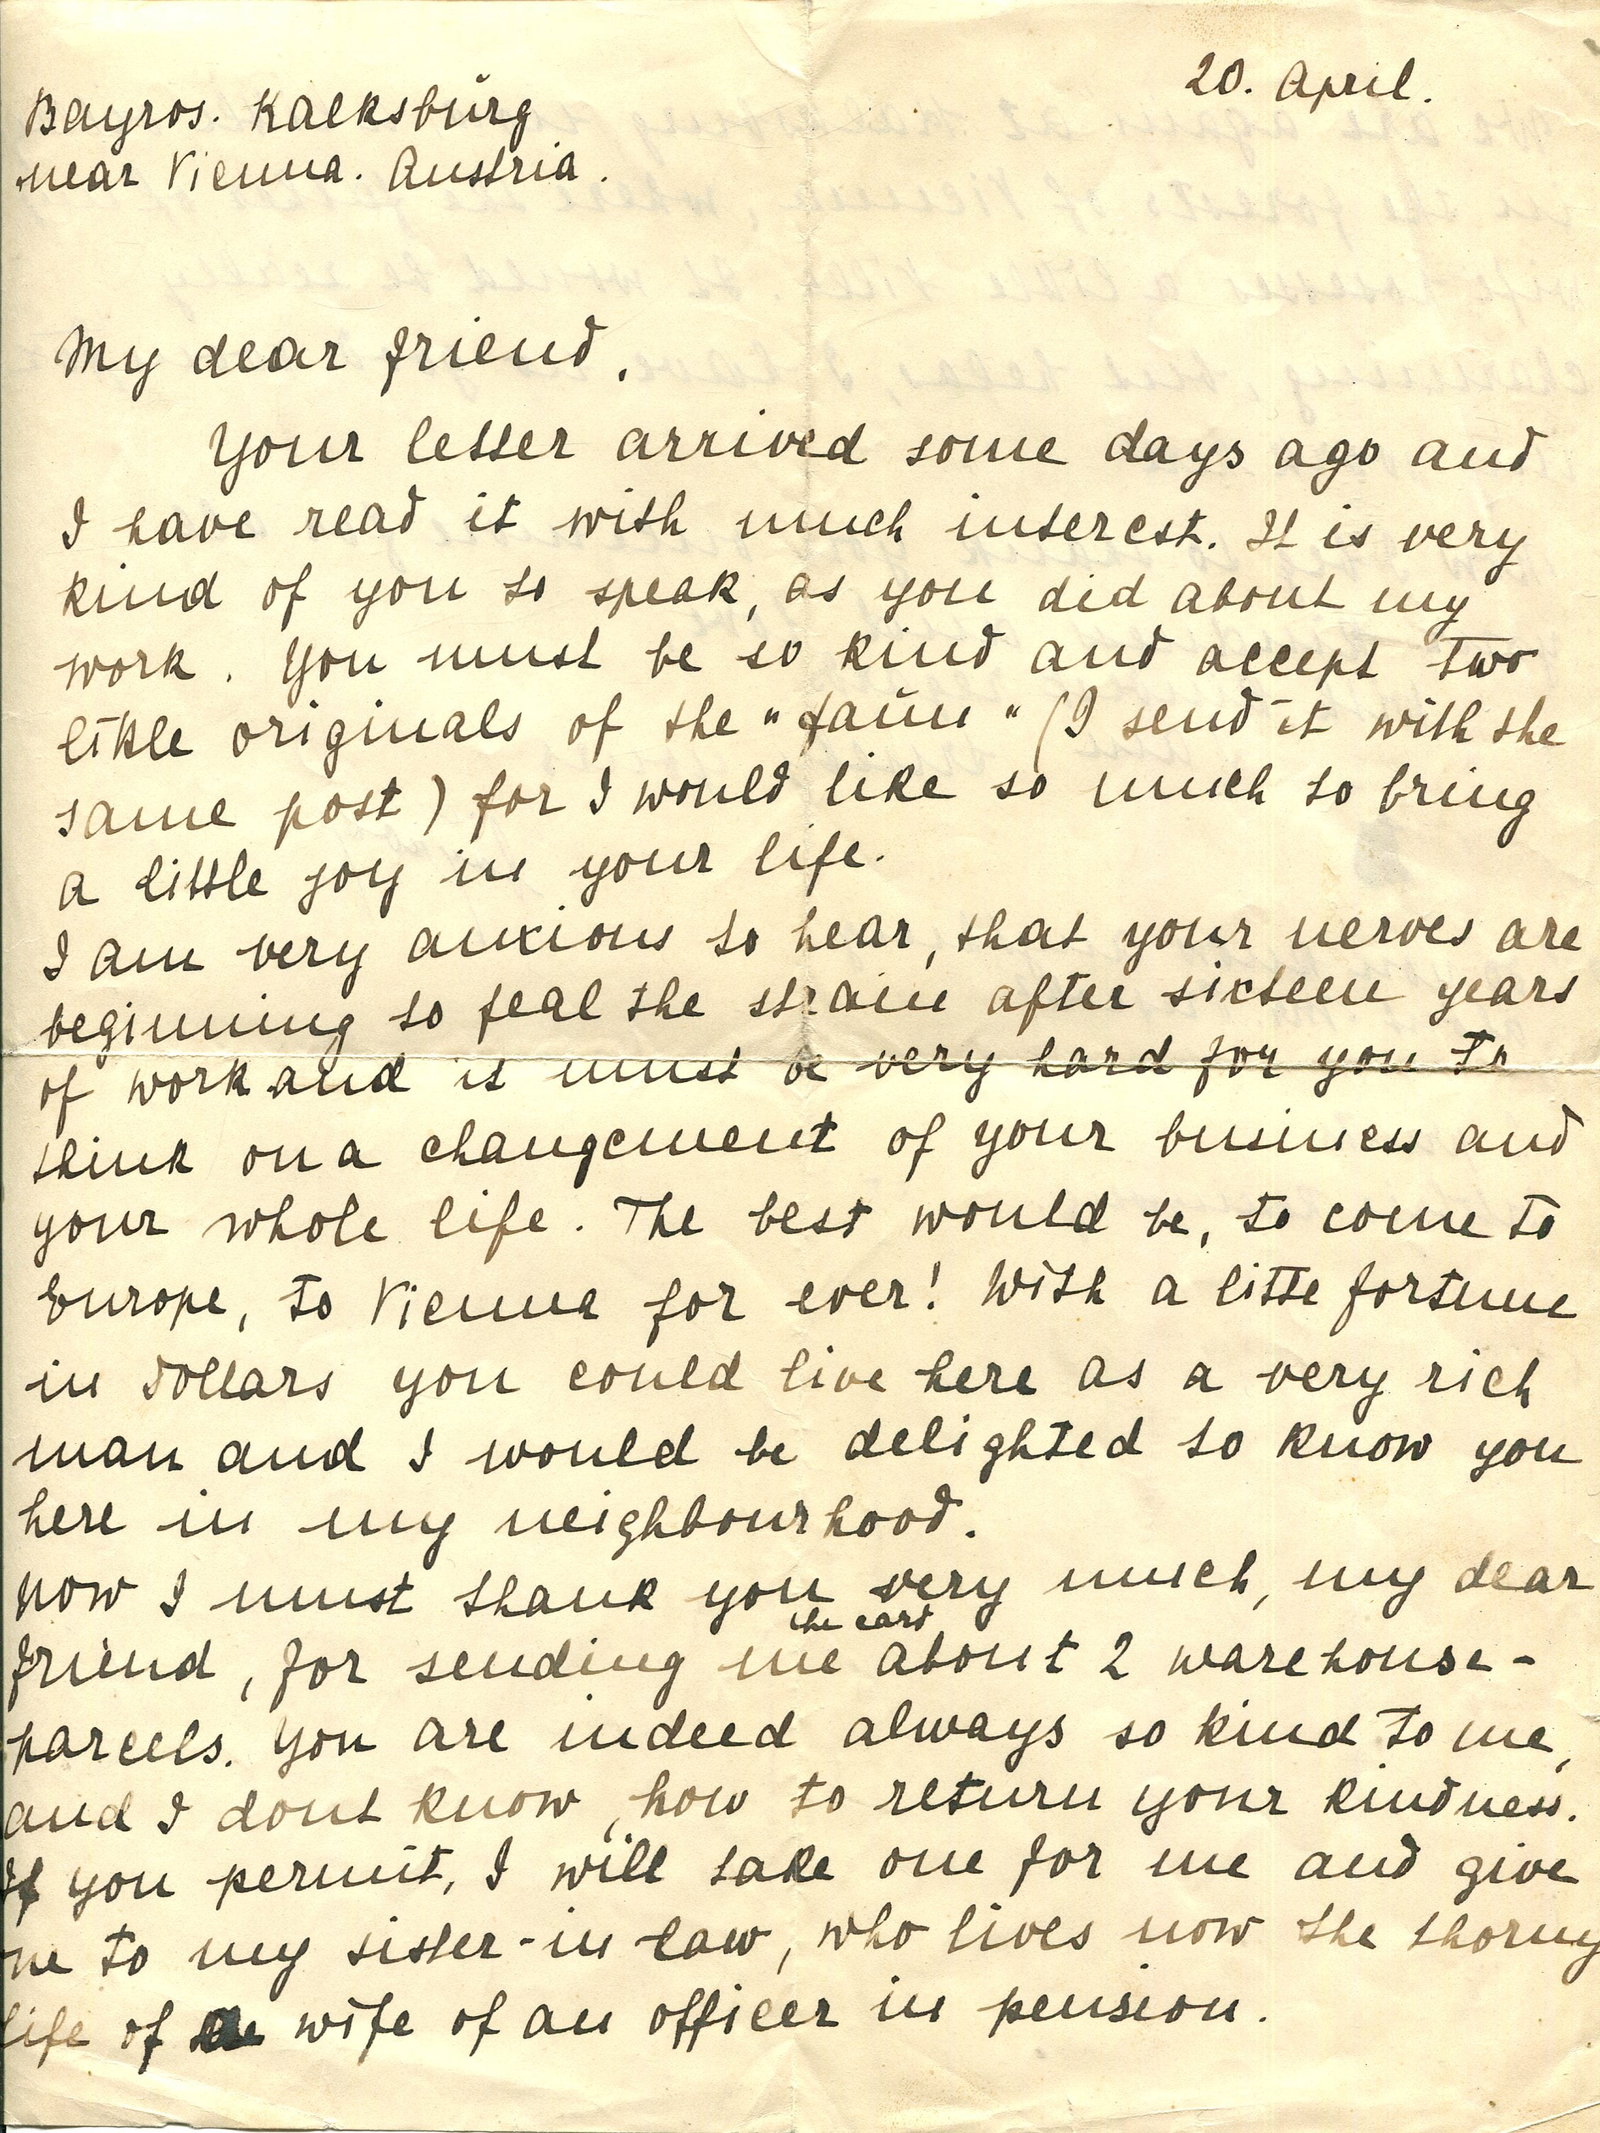 20. April.
Bayros. Kalksburg
near Vienna. Austria.
My dear friend,
Your letter arrived some days ago and
I have read it with much interest. It is very
kind of you to speak, as you did about my
work. You must be so kind and accept two
little originals of the "faun" (I send it with the
same post) for I would like so much to bring
a little joy in your life.
I am very anxious to hear, that your nerves are
beginning to feal the strain after sixteen years
of work and it must be very hard for you to
think on a changement of your business and
your whole life. The best would be, to come to
Europe, to Vienna for ever! With a litte fortune
in Dollars you could live here as a very rich
man and I would be delighted to know you
here in my neighbourhood.
Now I must thank you very much, my dear
the card
friend, for sending me about 2 warehouse-
parcels. You are indeed always so kind to me,
and I dont know, how to return your kindness.
If you permit, I will take one for me and give
ne to my sister-in-law, who lives now the thorny
life of wife of an officer in pension.